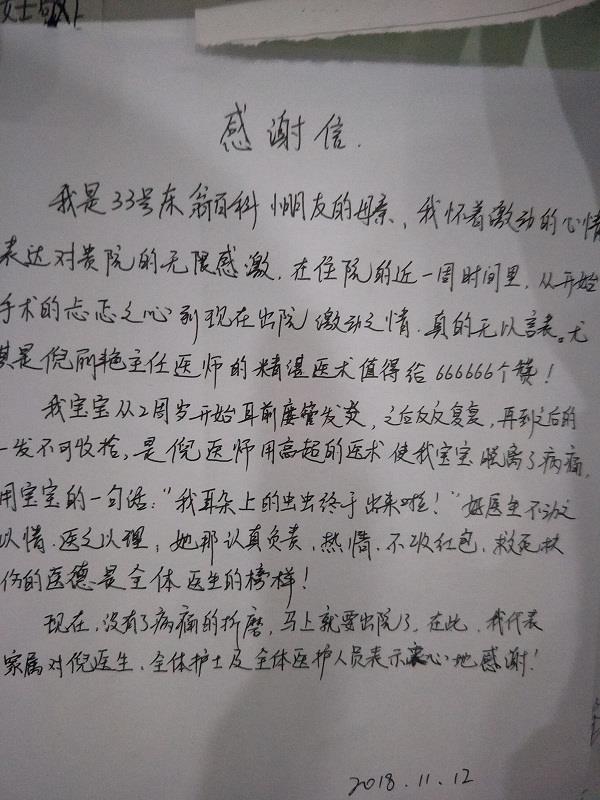 感谢信.
我是33号床翁百科小朋友的母亲，我怀着激动的心情
表达对贵院的无限感激。在住院的近一周时间里，从开始
手术的忐忑之心到现在出院激动之情，真的无以言表。尤
其是倪丽艳主任医师的精湛医术值得给666666个赞！
我宝宝从2周岁开始耳前瘘管发炎，之后反反复复，再到之后的
一发不可收拾，是倪医师用高超的医术使我宝宝脱离了病痛，
用宝宝的一句话："我耳朵上的虫虫终于出来啦！"好医生不动之
以情，医之以理，她那认真负责，热情，不收红包，救死扶
伤的医德是全体医生的榜样！
现在，没有了病痛的折磨，马上就要出院了，在此，我代表
家属对倪医生、全体护士及全体医护人员表示衷心地感谢！
2018.11.12